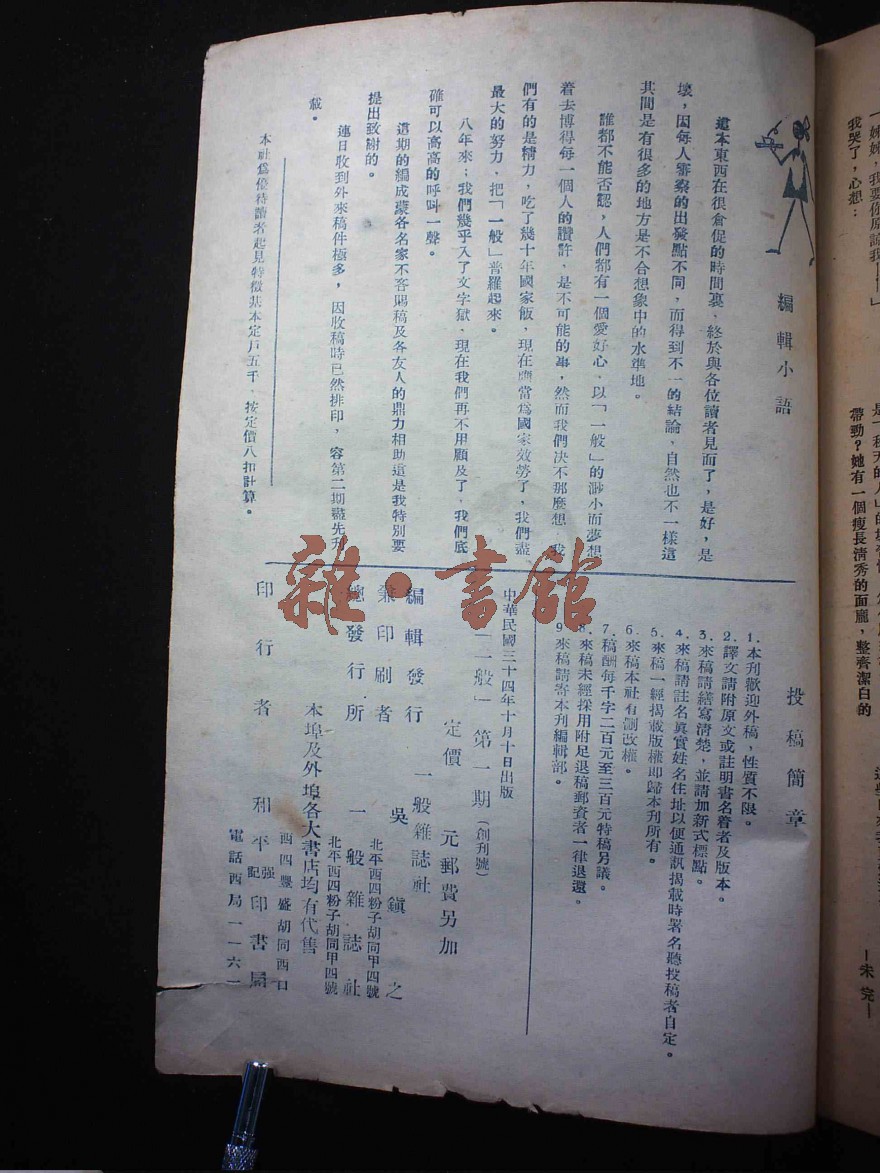 一姊姊，我要你原諒我——」
我哭了，心想：
帶勁？她有一個瘦長清秀的面龐，整齊潔白的
—未完—
編輯小語
這本東西在很倉促的時間裏，終於與各位讀者見面了，是好，是
壞，因每人審察的出發點不同，而得到不一的結論，自然也不一樣這
其間是有很多的地方是不合想象中的水準地。
誰都不能否認，人們都有一個愛好心，以「一般」的渺小而夢想
着去博得每一個人的讚許，是不可能的事，然而我們决不那麼想，我
們有的是精力，吃了幾十年國家飯，現在應當爲國家效勞了，我們盡
最大的努力，把「一般」普羅起來。
八年來；我們幾乎入了文字獄，現在我們再不用顧及了，我們底
確可以高高的呼叫一聲。
這期的編成蒙各名家不吝賜稿及各友人的鼎力相助這是我特別要
提出致謝的。
連日收到外來稿件極多，因收稿時已然排印，容第二期盡先刋
載。
本社爲優待讀者起見特徵基本定戶五千，按定價八扣計算。
投稿簡章
1.本刊歡迎外稿，性質不限。
2.譯文請附原文或註明書名着者及版本。
3.來稿請繕寫清楚，並請加新式標點。
4.來稿請註名眞實姓名住址以便通訊揭載時署名聽投稿者自定。
5.來稿一經揭載版權即歸本刋所有。
6.來稿本社有刪改權。
7.稿酬每千字二百元至三百元特稿另議。
8.來稿未經採用附足退稿郵資者一律退還。
9.來稿請寄本刋編輯部。
中華民國三十四年十月十日出版
「一般」第一期（創刋號）
定價　元郵費另加
編輯發行　一般雜誌社
兼印刷者　吳鎮之
北平西四粉子胡同甲四號
總發行所　一般雜誌社
北平西四粉子胡同甲四號
本埠及外埠各大書店均有代售
印行者　和平印書局
强記
西四豐盛胡同西口
電話西局一一六一
雜·書館